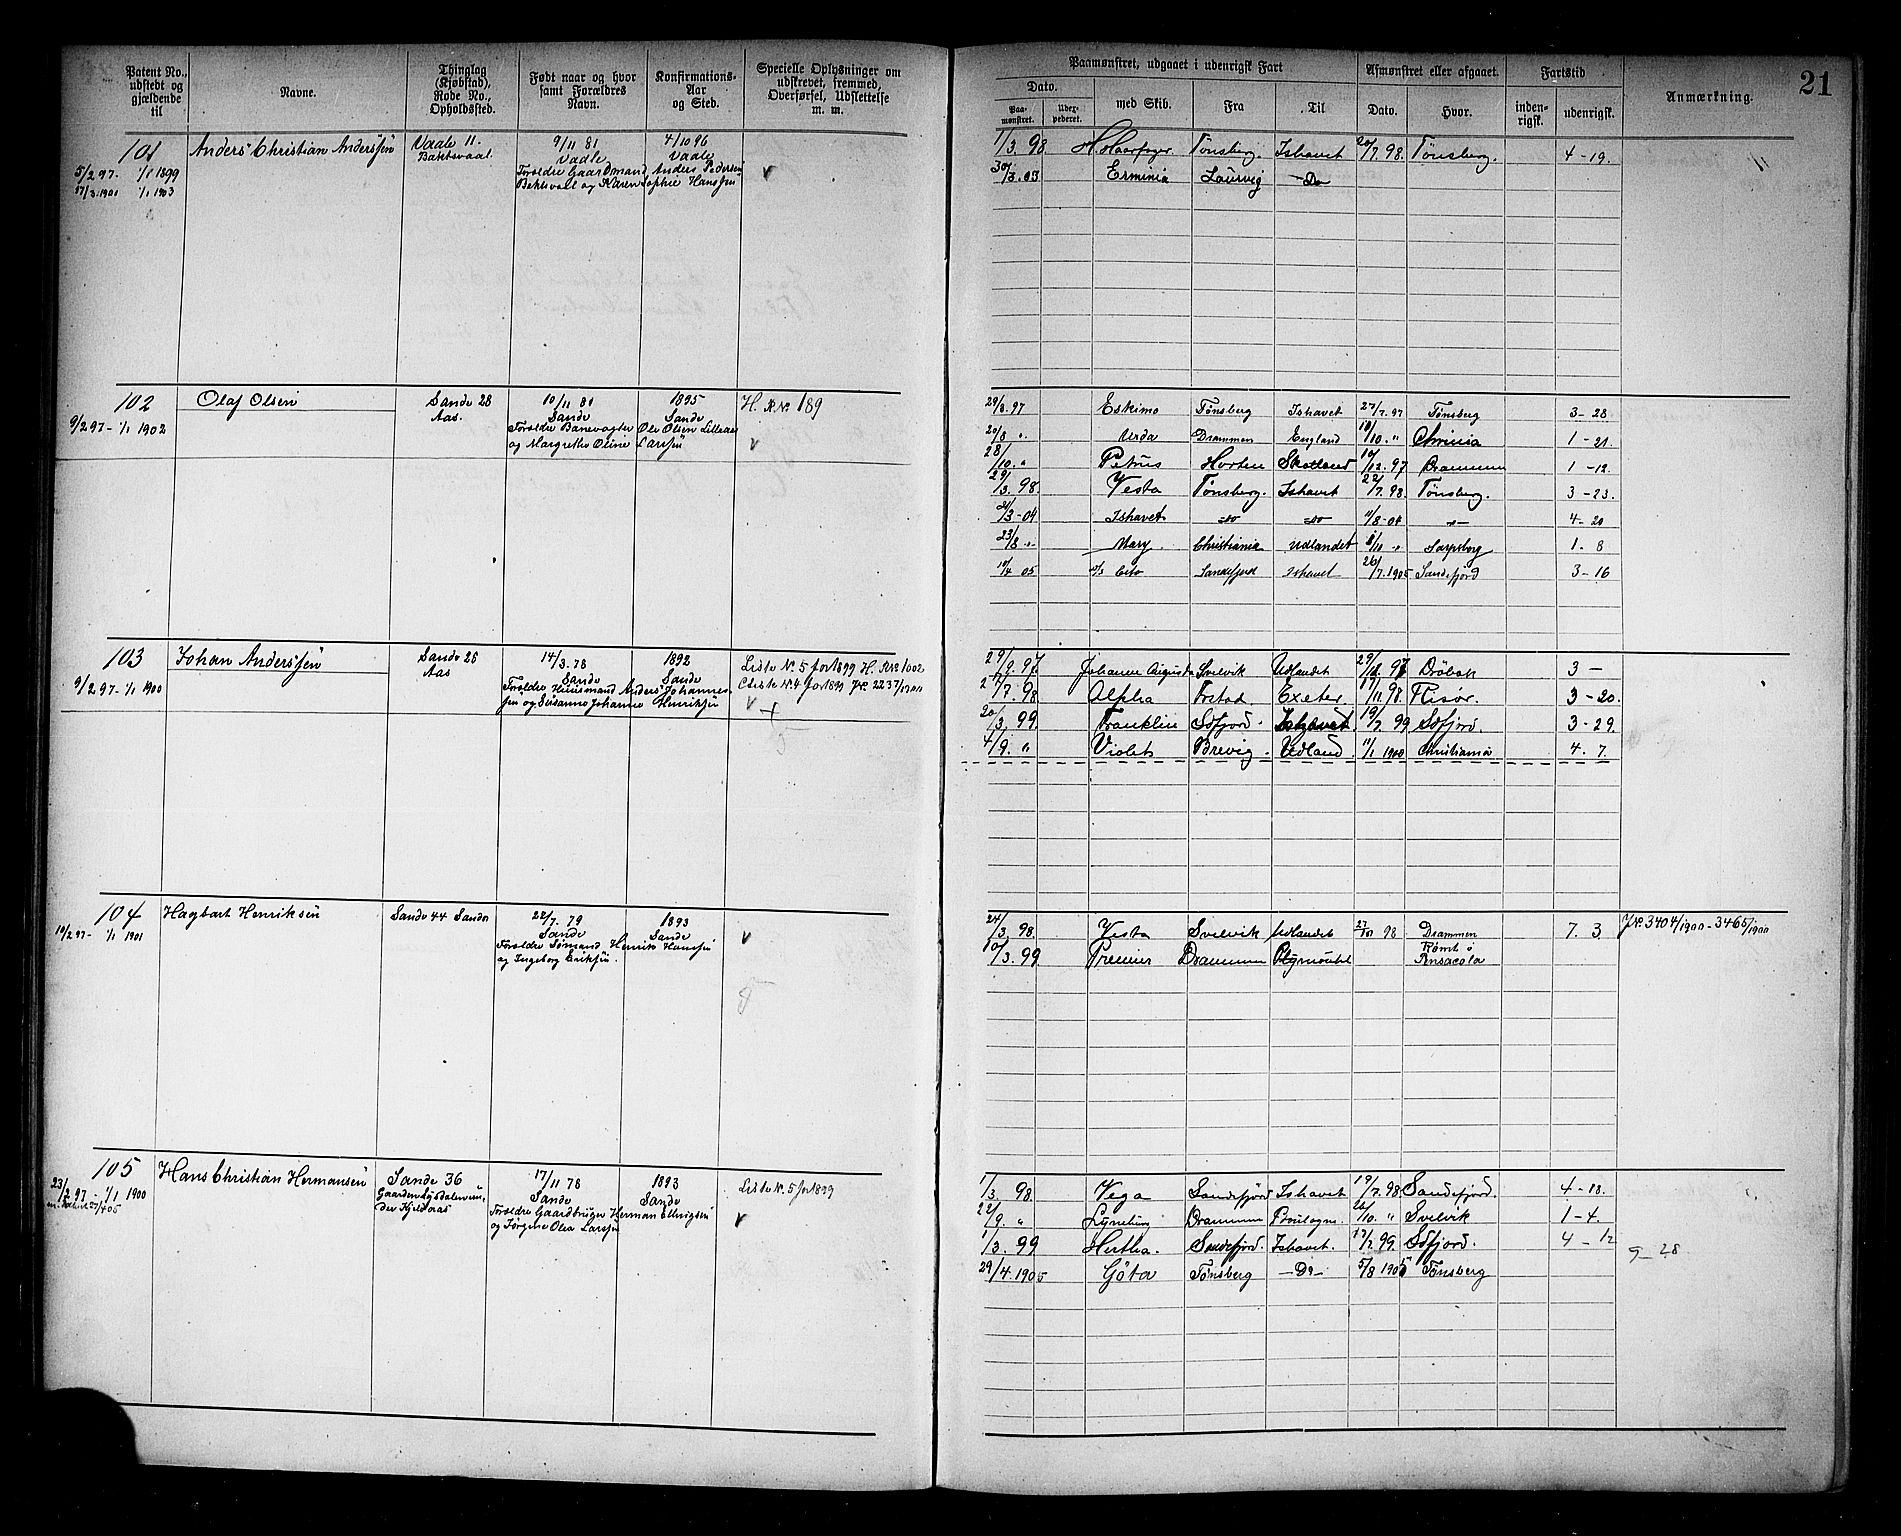 Patent No., udstedt og gjældende til
Navne.
Thinglag (Kjøbstad), Rode No., Opholdssted.
Født naar og hvor samt Forældres Navn.
Konfirmations-Aar og Sted.
Specielle Oplysninger om udskrevet, fremmed, Overførsel, Udslettelse m. m.
Paamønstret, udgaaet i udenrigsk Fart
Afmønstret eller afgaaet.
Fartstid
Anmærkning.
21
Dato.
Paa-mønstret.
Uder-pederet.
med Skib.
Fra
Til
Dato.
Hvor.
inden-rigsk.
udenrigsk.
101 Anders Christian Anderssen Vaale 11. 9/11 81 4/10 96
Vaale Vaale
5/2 97. 1/1 1899
17/3.1901 1/1 1903
Forældre Gaardmand Anders Pedersen
og Karen Sophie Hanssen
1/3. 98. H. Haarfager Tønsberg. Ishavet 20/7. 98. Tønsberg. 4-19.
30/3.03 Erminia Laurvig -Do
102 Olaf Olsen Sande 28 10/11 81 1895 H. R No 189
9/2 97 - 1/1 1902 Aas. Sande Sande
Forældre Banevogter Ole Olsen Lilleaas
og Margrethe Oline Larssen
29/3.97 Eskimo Tønsberg Ishavet 27/7.97 Tønsberg 3-28
20/8 " Urda Drammen England 18/10. " Chrinia 1-21.
28/10. " Petrus Horten Skotland 10/12.97 Drammen 1-12.
29/3.98. Vesta Tønsberg. Ishavet 22/7.98. Tønsberg. 3-23.
21/3-04 Ishavet -do -do 11/8-04 -"- 4-20
23/8 " Mary Christiania Udlandet 1/10 " Sarpsborg 1-8
10/4 05 Sandefjord Ishavet 26/7.1905 Sandefjord 3-16
103 Johan Anderssen Sande 28 14/3.78 1892 Liste No. 5 for 1899 H. R No 1002
9/2 97 - 1/1 1900 Aas Sande Sande Liste No 4 for 1899 J No 2237/1900
Forældre Huusmand Anders Johannes-
sen og Susanne Johanne Henriksen
29/9.97 Johanne Augusta Svelvik Udlandet 29/12 97 Drøbak 3 -
2/7.98 Alpha Frstad Exeter. 17/11 98. Risør. 3-20.
20/3.99 Franklin Sdfjord. Ishavet 19/7 99 Sdfjord. 3-29.
4/9. " Violet Brevig. Udland. 11/1 1900 Christiania 4.7.
104 Hagbart Henriksen Sande 44 Sande 22/7.79 1893
10/2.97 - 1/1 1901 Sande Sande
Forældre Sømand Henrik Hanssen
og Ingeborg Eriksen.
24/3.98. Vesta Svelvik Udlandet 27/10 98 Drammen 7.3 J No. 3404/1900 - 3465/1900
10/3.99 Premier Drammen Plymouth Rømt i Pensacola
105 Hans Christian Hermansen Sande 36 17/11 78 1893 Liste No. 5 for 1899
23/2 97 - 1/1 1900 Sande Sande
Forældre Gaardbruger Herman Ellingsen
og Jørgine Olea Larssen
1/3.98. Vega Sandefjord Ishavet 19/7.98 Sandefjord. 4-18.
22/9. " Drammen Boulogne. 26/10. " Svelvik 1-4.
1/3.99 Hertha. Sandefjord. Ishavet. 17/7 99. Sdfjord. 4-12
9-28
29/4.1905 Göta Tønsberg -Do- 5/8 1905 Tønsberg